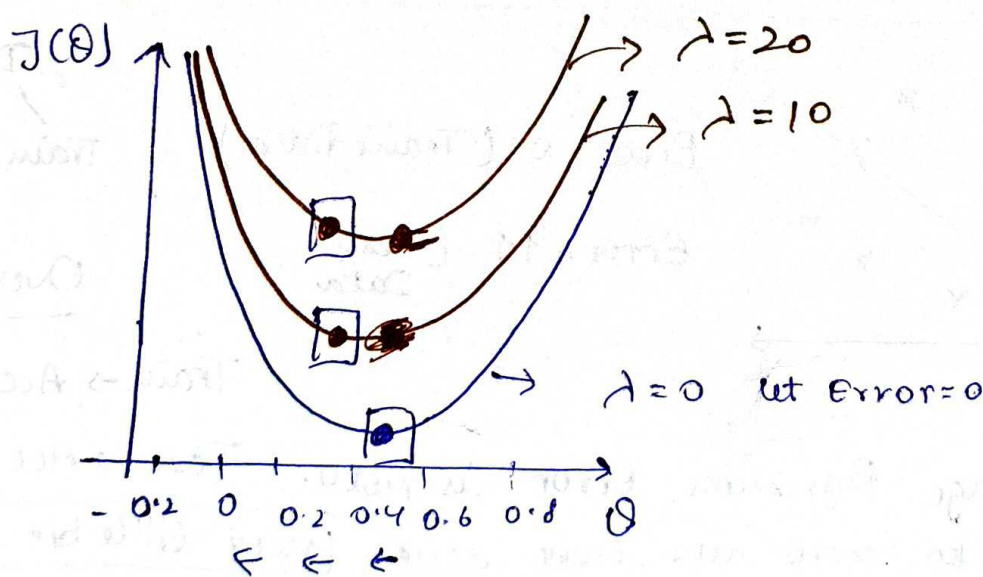 J(θ)
λ=20
λ=10
λ=0 let Error=0
-0.2 0 0.2 0.4 0.6 0.8 θ
← ← ←